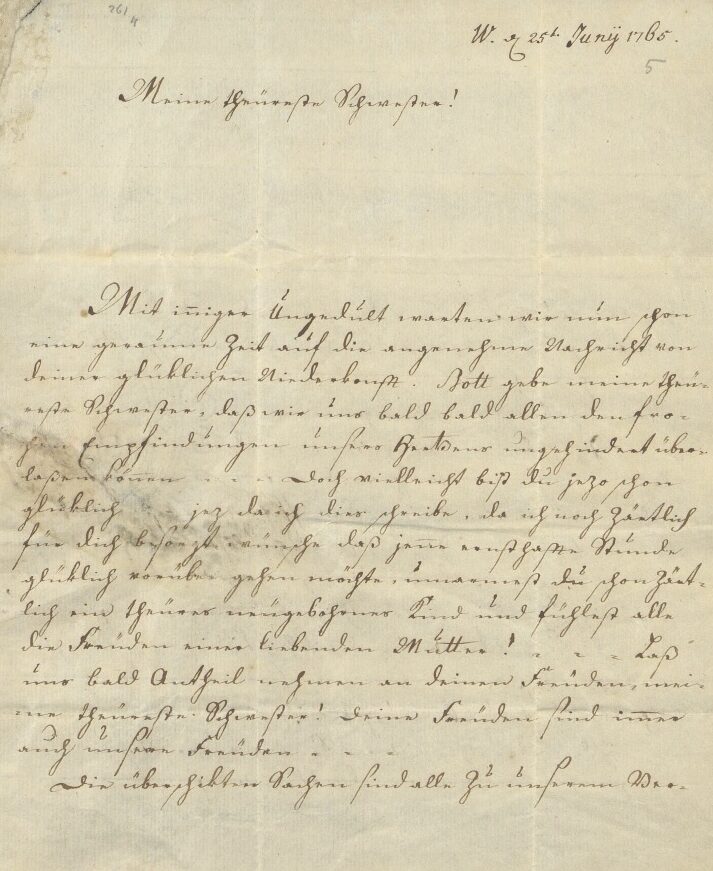 261/4
W. d 25t. Junÿ 1765.
5
Meine theüreste Schwester!
Mit iñiger Ungedült warten wir nün schon
eine geraume Zeit aüf die angenehme Nachricht von
deiner glüklichen Niederkonfft. Gott gebe meine theü-
reste Schwester, daß wir üns bald bald allen den fro-
hen Empfindüngen ünsers Hertzens ungehindert über-
laßen können - - - - Doch vielleicht bist dü jezo schon
glüklich - jez da ich dies schreibe, da ich noch Zärtlich
für dich besorgt wünsche daß jenne ernsthaffte Stünde
glüklich vorüber gehen möchte, ümarmest dü schon Zärt-
lich ein theüres neügebohrnes Kind und fühlest alle
die Freüden einer liebenden Mütter! - - - Laß
üns bald Antheil nehmen an deinen Freüden, mei-
ne theüreste Schwester! Deine Freüden sind immer
auch ünsere Freüden - - -
Die überschikten Sachen sind alle Zü ünserem Ver-